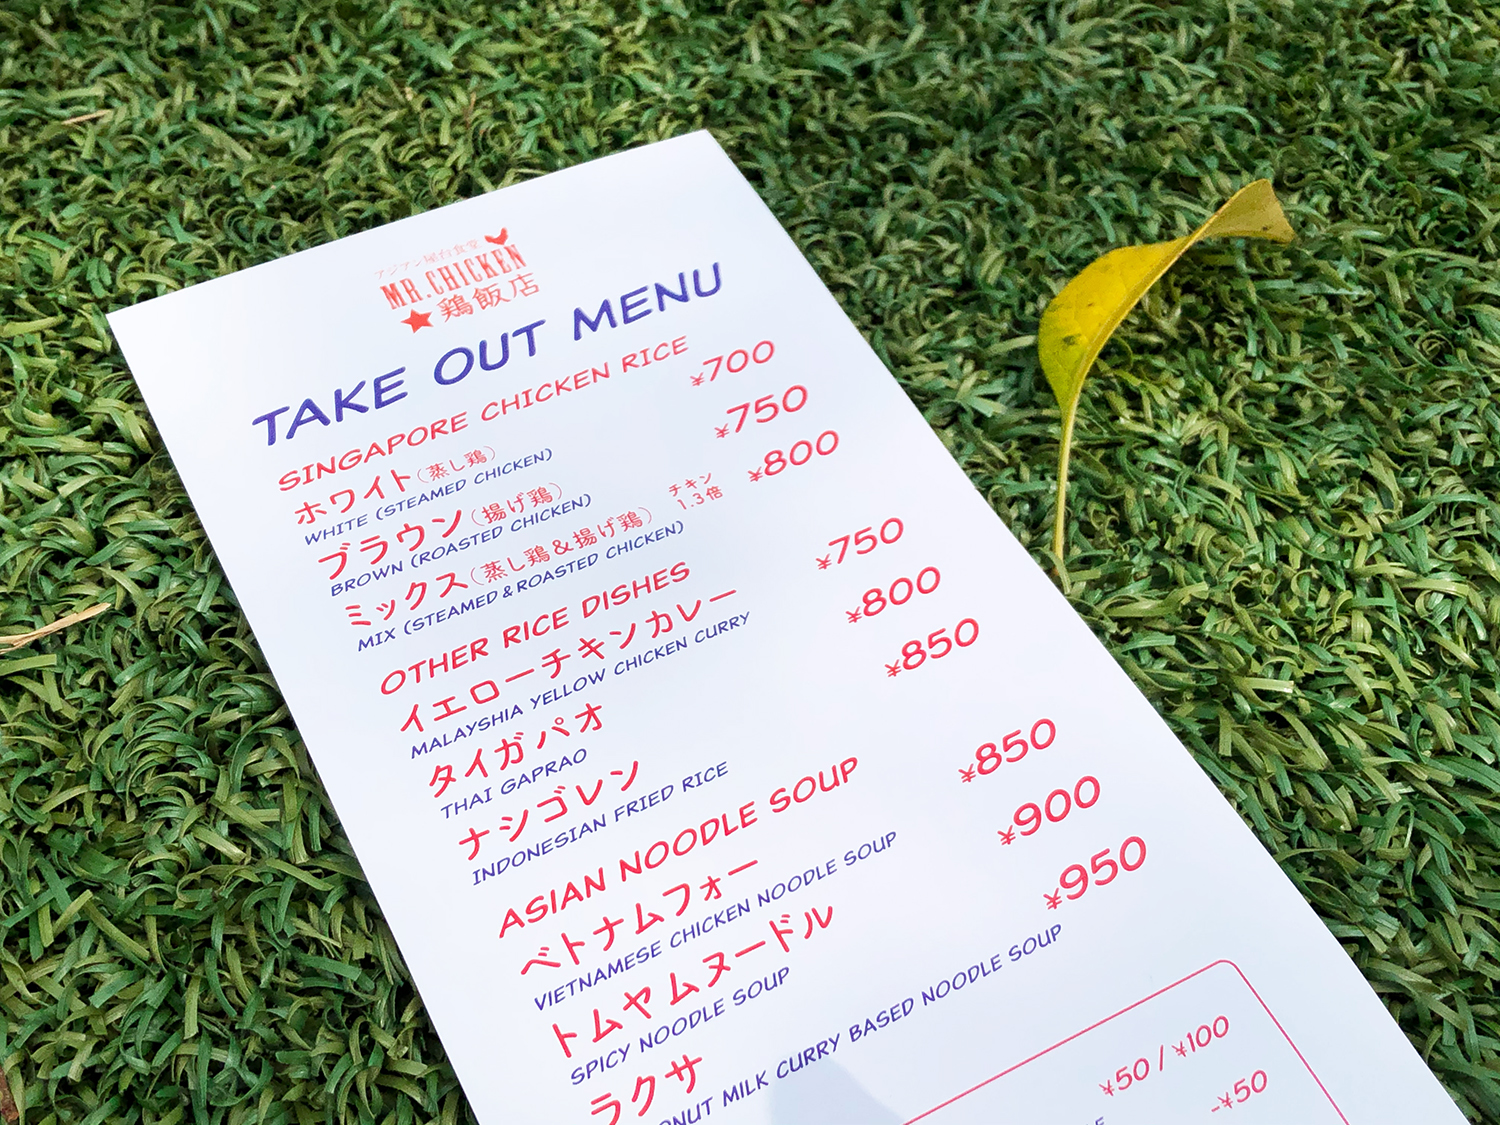 アジアン屋台食堂
MR.CHICKEN
★鶏飯店
TAKE OUT MENU
SINGAPORE CHICKEN RICE
ホワイト(蒸し鶏) ¥700
WHITE (STEAMED CHICKEN)
ブラウン(揚げ鶏) ¥750
BROWN (ROASTED CHICKEN)
ミックス(蒸し鶏&揚げ鶏) チキン1.3倍 ¥800
MIX (STEAMED & ROASTED CHICKEN)
OTHER RICE DISHES
イエローチキンカレー ¥750
MALAYSHIA YELLOW CHICKEN CURRY
タイガパオ ¥800
THAI GAPRAO
ナシゴレン ¥850
INDONESIAN FRIED RICE
ASIAN NOODLE SOUP
ベトナムフォー ¥850
VIETNAMESE CHICKEN NOODLE SOUP
トムヤムヌードル ¥900
SPICY NOODLE SOUP
ラクサ ¥950
MILK CURRY BASED NOODLE SOUP
¥50 / ¥100
-¥50